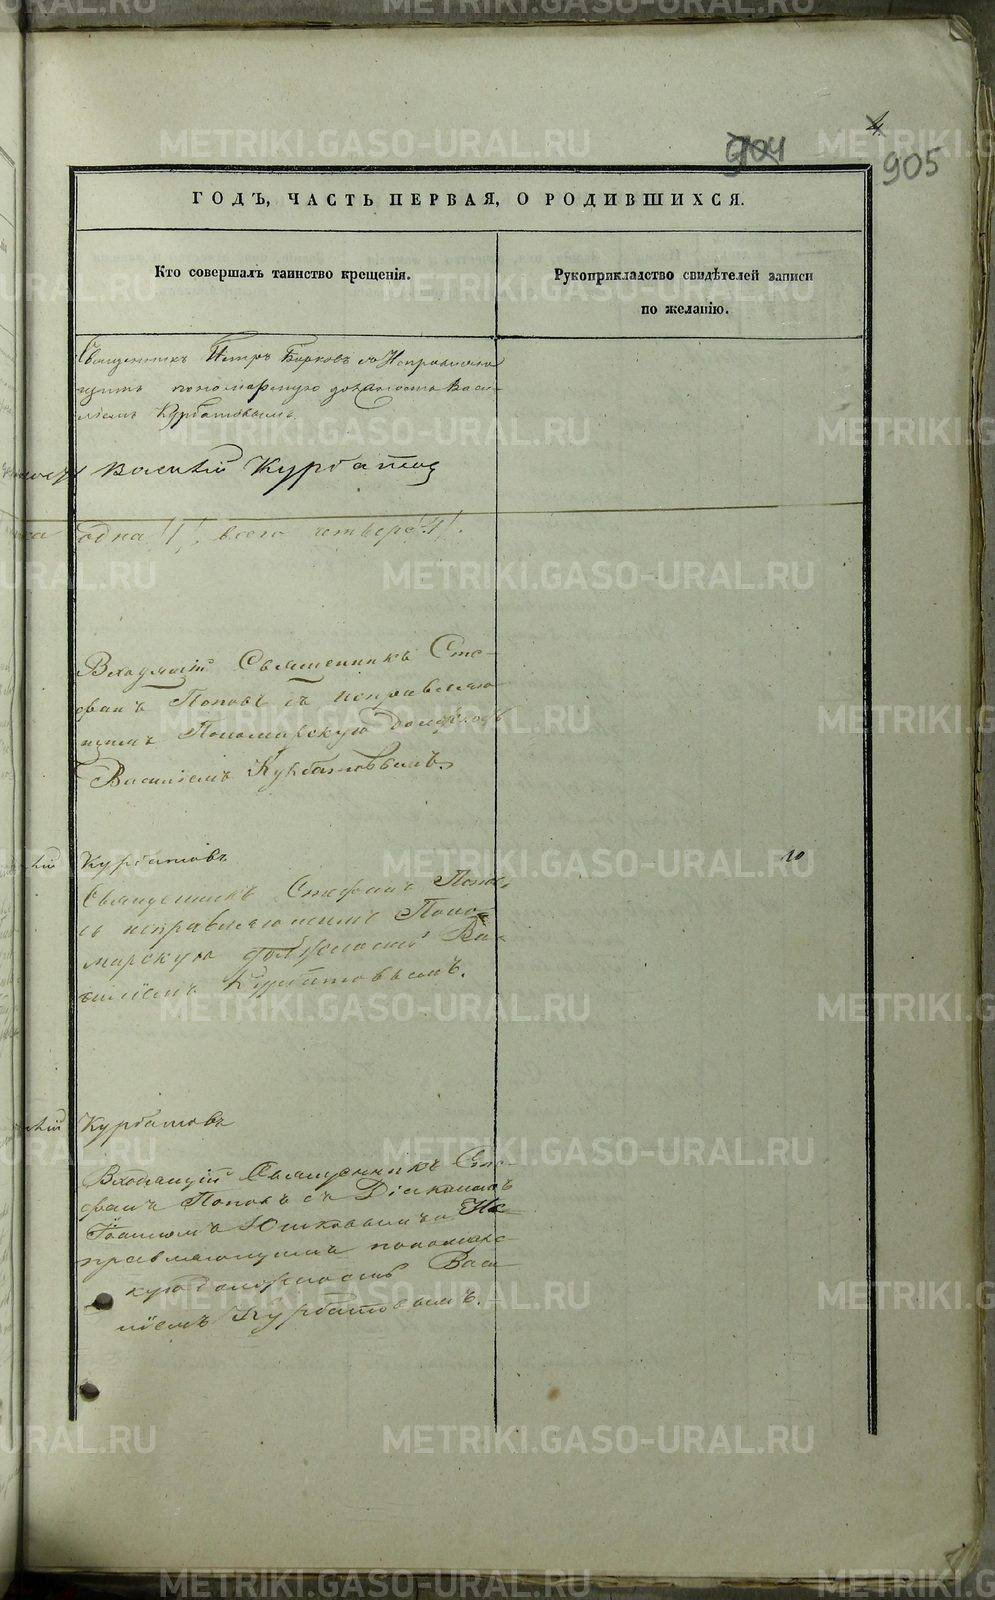 4
904
905
ГОДЪ, ЧАСТЬ ПЕРВАЯ, О РОДИВШИХСЯ.
Кто совершалъ таинство крещенія.
Рукоприкладство свидѣтелей записи
по желанію.
Священникъ Петръ Борковъ
пономарскую должность Васи-
ліемъ Курбатовымъ
Василій Курбатов
одна /1/, всего четверо /4/.
Входящій Священникъ Сте-
фанъ Поповъ съ исправляю
щимъ Пономарскую должность
Василіемъ Курбатовымъ.
Курбатовъ
10
Священникъ Стефанъ Попов
съ исправляющимъ Поно-
марскую должность Ва-
силіемъ Курбатовымъ.
Курбатовъ
Входящій Священникъ Сте-
фанъ Поповъ съ Діакономъ
Іоанномъ Юшковымъ Ис-
правляющимъ пономарс-
кую должность Васи-
ліемъ Курбатовымъ.
METRIKI.GASO-URAL.RU